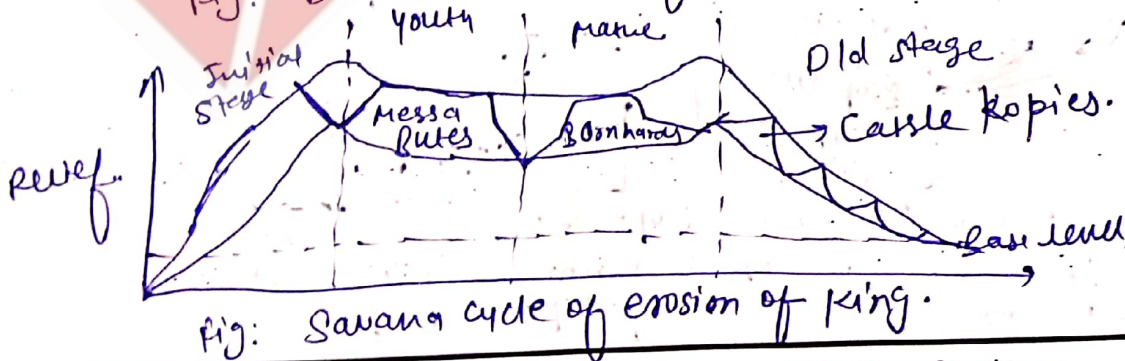 Fig:
Youth
Matue
Old stage
Initial
Stage
Messa
Butes
Bornhards
Castle Kopies.
Relief.
Base level
Fig: Savana cycle of erosion of King.